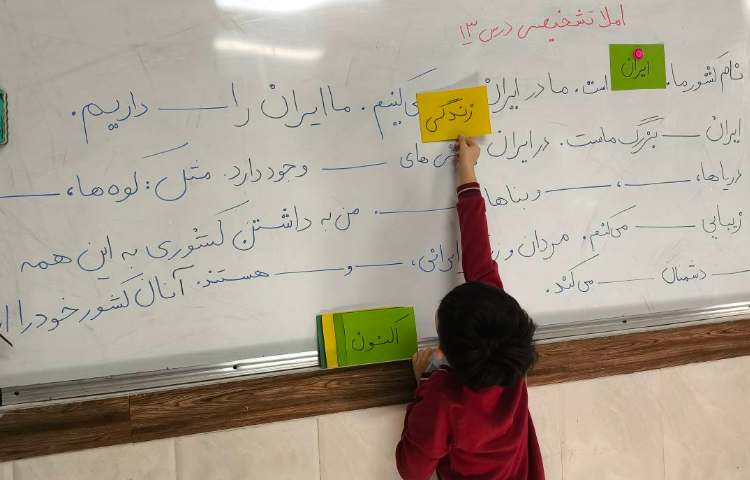 املا تشخیصی درس ۱۳
نام کشور ما ایران است. ما در ایران زندگی می‌کنیم. ما ایران را ـــــ داریم.
ایران ـــــ بزرگ ماست. در ایران های ـــــ وجود دارد. مثل: کوه‌ها، ـــــ
دریاها، ـــــ، ـــــ و بناها ـــــ. من به داشتن کشوری به این همه
زیبایی ـــــ می‌کنم. مردان و ایرانی، ـــــ و ـــــ هستند. آنان کشور خود را
ـــــ دشمنان ـــــ می‌کند.
اکنون